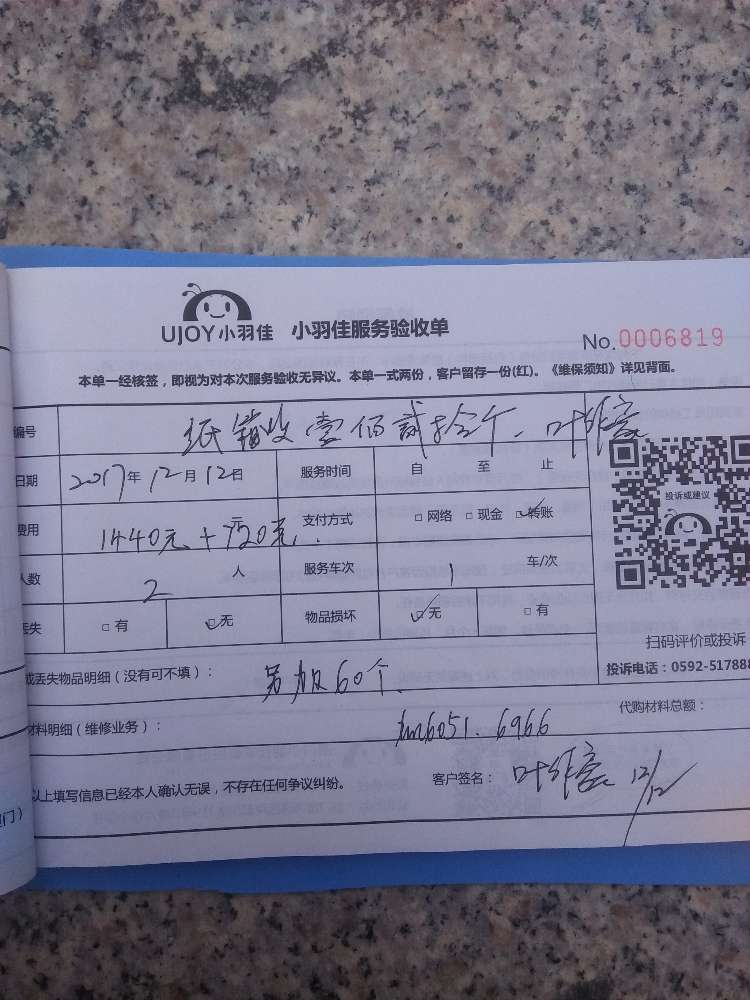 UJOY小羽佳 小羽佳服务验收单
No.0006819
本单一经核签，即视为对本次服务验收无异议。本单一式两份，客户留存一份(红)。《维保须知》详见背面。
编号 纸箱收壹佰贰拾个. 叶维
日期 2017年12月12日 服务时间 自 至 止
投诉或建议
费用 1440元+720元. 支付方式 □网络 □现金 ☑转账
人数 2人 服务车次 1 车/次
丢失 □有 ☑无 物品损坏 ☑无 □有
扫码评价或投诉
投诉电话：0592-517888
或丢失物品明细（没有可不填）： 另加60个.
代购材料总额：
材料明细（维修业务）： 6051. 6966
以上填写信息已经本人确认无误，不存在任何争议纠纷。 客户签名： 叶维 12/12
门）